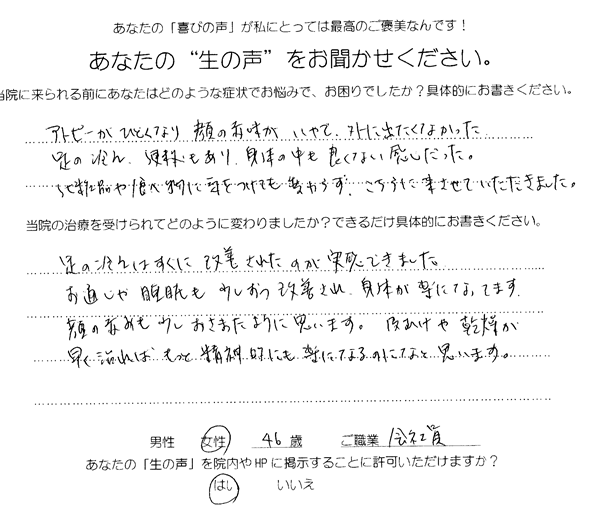 あなたの「喜びの声」が私にとっては最高のご褒美なんです!
あなたの“生の声”をお聞かせください。
当院に来られる前にあなたはどのような症状でお悩みで、お困りでしたか?具体的にお書きください。
アトピーがひどくなり 顔の赤味がいやで、外に出たくなかった
足の冷え、便秘もあり、身体の中も良くない感じだった。
化粧品や食べ物に気をつけても変わらず、こちらに来させていただきました。
当院の治療を受けられてどのように変わりましたか?できるだけ具体的にお書きください。
足の冷えはすぐに改善されたのが実感できました。
お通じや 睡眠も 少しずつ 改善され、身体が楽になってます。
顔の赤みも少しおさまったように思います。 皮むけや 乾燥が
早く治れば もっと 精神的にも楽になるのになと思います。
男性 女性 46歳 ご職業 会社員
あなたの「生の声」を院内やHPに掲示することに許可いただけますか?
はい いいえ